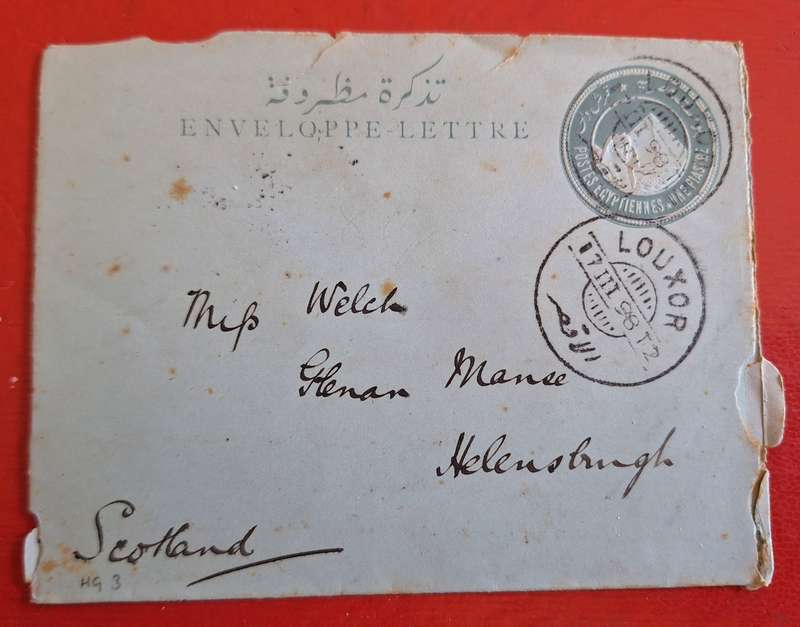 تذكرة مظروفة
ENVELOPPE-LETTRE
POSTES EGYPTIENNES UNE PIASTRE
LOUXOR
17 III 98 T2
الاقصر
Miss Welch
Glenan Manse
Helensburgh
Scotland
HG 3